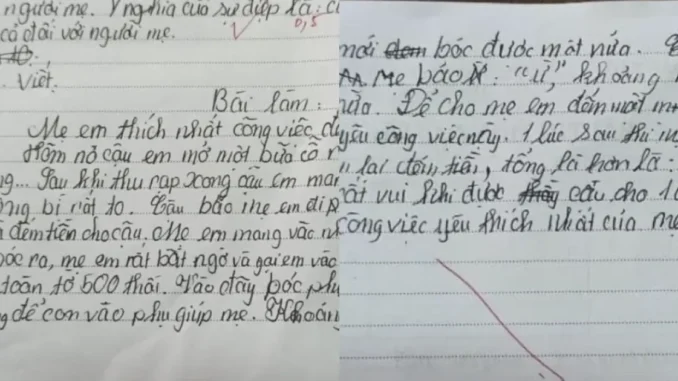 người mẹ. Ý nghĩa của sự điệp là: c
cả đối với người mẹ.
0,5
Viết.
Bài làm:
Mẹ em thích nhất công việc đ
Hôm nọ cậu em mở một bữa cỗ r
ng... Sau khi thu rạp xong cậu em man
ng bì rất to. Cậu bảo mẹ em đi p
à đếm tiền cho cậu. Mẹ em mang vào n
bóc ra, mẹ em rất bất ngờ và gọi em vào
toàn tờ 500 thôi. Vào đây bóc ph
g để con vào phụ giúp mẹ. Khoảng
mới đem bóc được một nửa.
Mẹ bảo: "ừ," khoảng
nữa. Để cho mẹ em đếm mất m
yêu công việc này. 1 lúc sau thì m
u lại đếm tiền, tổng là hơn là:
rất vui khi được cậu cho 10
công việc yêu thích nhất của mẹ